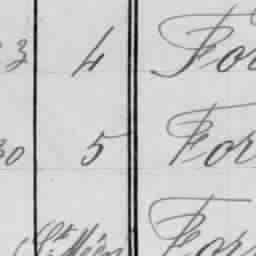 3 4 For
30 5 For
St Méen For